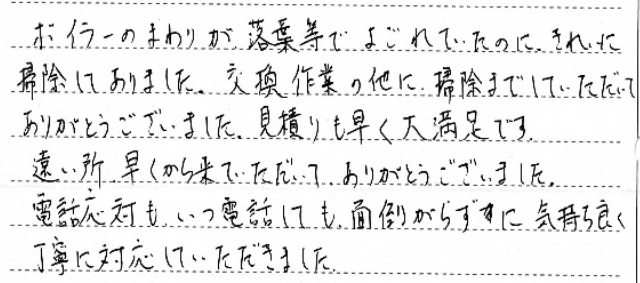 ボイラーのまわりが落葉等でよごれていたのに、きれいに
掃除してありました。交換作業の他に、掃除までしていただいて
ありがとうございました。見積りも早く大満足です。
遠い所、早くから来ていただいて、ありがとうございました。
電話応対も、いつ電話しても、面倒がらずすに気持ち良く
丁寧に対応していただきました。